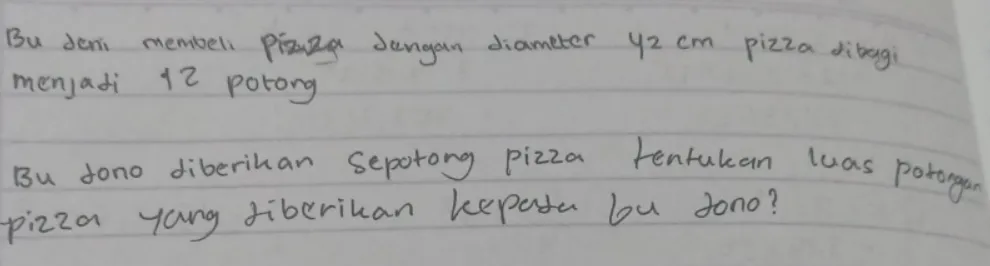 Bu deni membeli pizza dengan diameter 42 cm pizza dibagi
menjadi 12 potong
Bu dono diberikan sepotong pizza tentukan luas potongan
pizza yang diberikan kepada bu dono?